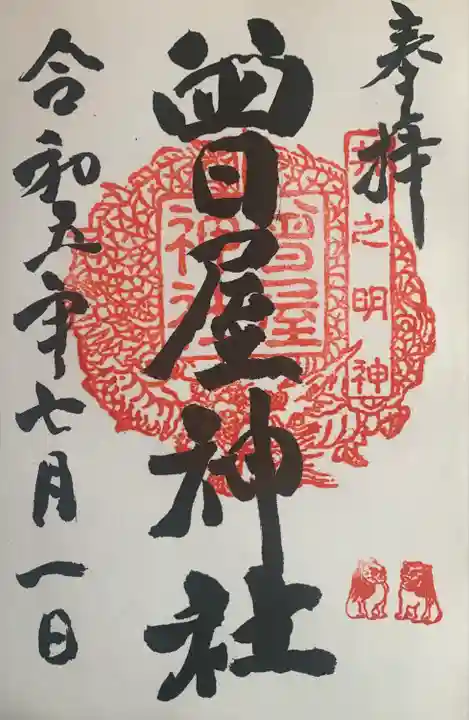 奉拝
井之明神
曽屋神社
曽屋
神社
令和五年七月一日